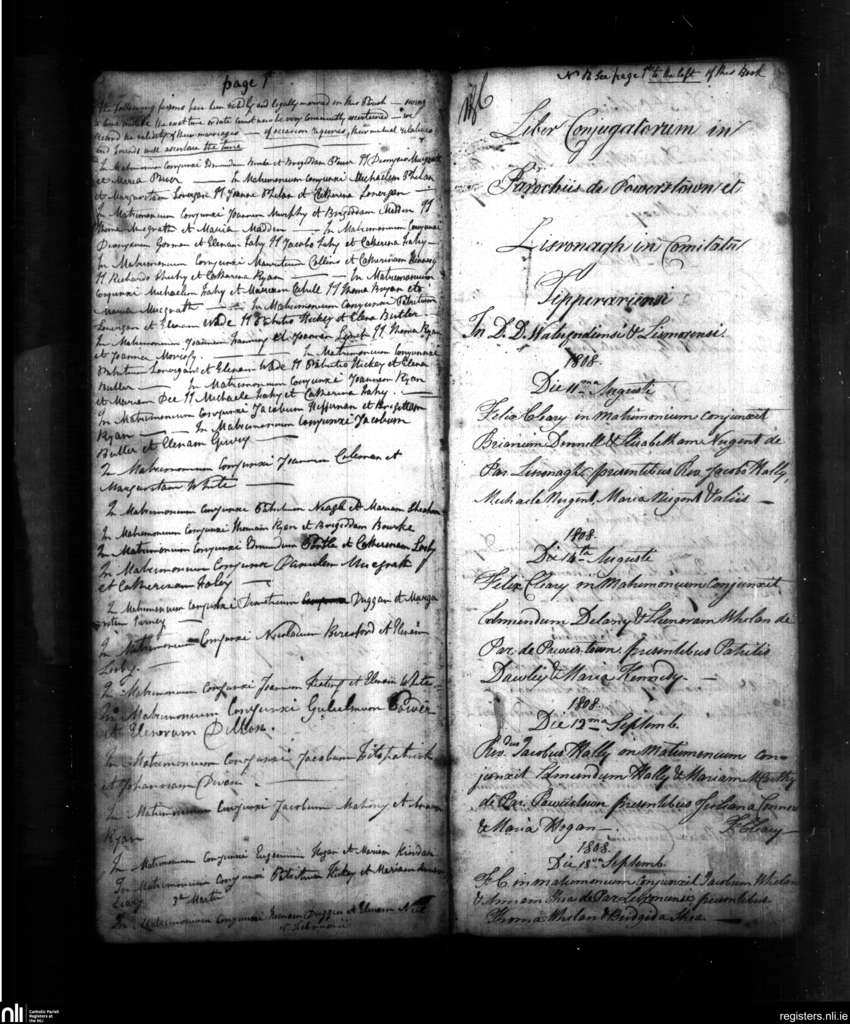 page 1st
The following persons have been validly and legally married in this Parish — owing
to some mistake the exact time or date cannot now be very conveniently ascertained — we
record the validity of their marriages — if occasion requires, their mutual relatives
and friends will ascertain the time
In Matrimonium Conjunxi Edmundum Burke et Brigiddam Power TT Dionysio Musgrath
et Maria Power — In Matrimonium Conjunxi Michaelem Phelan
et Margaritam Lonergan TT Joanne Phelan et Catherina Lonergan —
In Matrimonium Conjunxi Joannem Murphy et Brigiddam Madden TT
Thoma Musgrath et Maria Madden — In Matrimonium Conjunxi
Dionysium Gorman et Elenam Fahy TT Jacobo Fahy et Catherina Fahy —
In Matrimonium Conjunxi Mauritium Collins et Catharinam
TT Richardo Sheehy et Catharina Ryan — In Matrimonium
Conjunxi Michaelem Fahy et Mariam Cahill TT Thoma Bryan et
Maria Musgrath — In Matrimonium Conjunxi Patritium
Lonergan et Elenam Wade TT Patritio Hickey et Elena Butler
In Matrimonium Joannem et Joannam TT Thoma Ryan
et Joanna — In Matrimonium Conjunxi
Patritium Lonergan et Elenam Wade TT Patritio Hickey et Elena
Butler — In Matrimonium Conjunxi Joannem Ryan
et Mariam Dee TT Michaele Fahy et Catherina Fahy —
In Matrimonium Conjunxi Jacobum Heffernan et Brigittam
Ryan — In Matrimonium Conjunxi Jacobum
Butler et Elenam
In Matrimonium Conjunxi Joannem Coleman et
Margaritam White —
In Matrimonium Conjunxi Patritium Neagle et Mariam
In Matrimonium Conjunxi Thomam Ryan et Brigiddam Bourke
In Matrimonium Conjunxi Edmundum et Catherinam Leahy
In Matrimonium Conjunxi Danielem Musgrath
et Catherinam Fahy —
In Matrimonium Conjunxi Duggan et Marga
ritam —
In Matrimonium Conjunxi Nicolaum Beresford et Elenam
Leahy —
In Matrimonium Conjunxi Joannem Keating et Elenam White
In Matrimonium Conjunxi Gulielmum Power
et Elenoram Dillon.
In Matrimonium Conjunxi Jacobum Fitzpatrick
et Johannam Dwan —
In Matrimonium Conjunxi Jacobum Mahony et
Ryan
In Matrimonium Conjunxi Eugenium Hogan et Mariam
In Matrimonium Conjunxi Patritium Hickey et Mariam
Leary 3a Martii
In Matrimonium Conjunxi Duggan et Elenam Neil
N B See page 1st to the left of this Book
Liber Conjugatorum in
Parochiis de Powerstown et
Lisronagh in Comitatu
Tipperariensi
In D. D. Waterfordiensi & Lismorensi
1808
Die 11ma Augusti
Felix Cleary in Matrimonium Conjunxit
Brianum Donnell & Elisabetham Nugent de
Par Lisronagh, presentibus Rev. Jacobo Hally,
Michaele Nugent, Maria Nugent & aliis —
1808.
Die 14ta Augusti
Felix Cleary in Matrimonium conjunxit
Edmundum Delany & Elenoram Whelan de
Par. de Powerstown presentibus Patritio
Dawley & Maria Kennedy. —
1808.
Die 12ma Septemb.
Revdus Jacobus Hally in Matrimonium con-
junxit Edmundum Hally & Mariam McCarthy
de Par Powerstown presentibus Juliana Connor
& Maria Hogan —. F. Cleary
1808.
Die 18va Septemb.
F. C. in matrimonium conjunxit Jacobum Whelan
& Annam Shea de Par Lisronensi presentibus
Thoma Whelan & Bridgida Shea —
nli Catholic Parish
Registers at
the NLI
registers.nli.ie